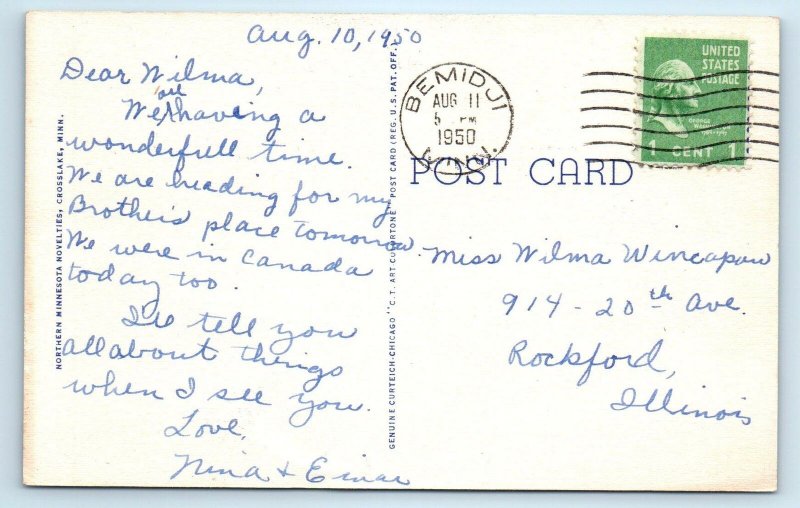 Aug. 10, 1950
Dear Wilma,
We all having a
wonderfull time.
We are heading for my
Brother's place tomorrow
We were in Canada
today too.
I'll tell you
all about things
when I see you.
Love,
Nina & Einar
NORTHERN MINNESOTA NOVELTIES, CROSSLAKE, MINN.
GENUINE CURTEICH-CHICAGO "C.T. ART-COLORTONE" POST CARD (REG. U.S. PAT. OFF.)
BEMIDJI
AUG 11
5 PM
1950
MINN.
UNITED
STATES
POSTAGE
GEORGE
WASHINGTON
1 CENT 1
POST CARD
Miss Wilma Wincapaw
914 - 20th Ave.
Rockford,
Illinois